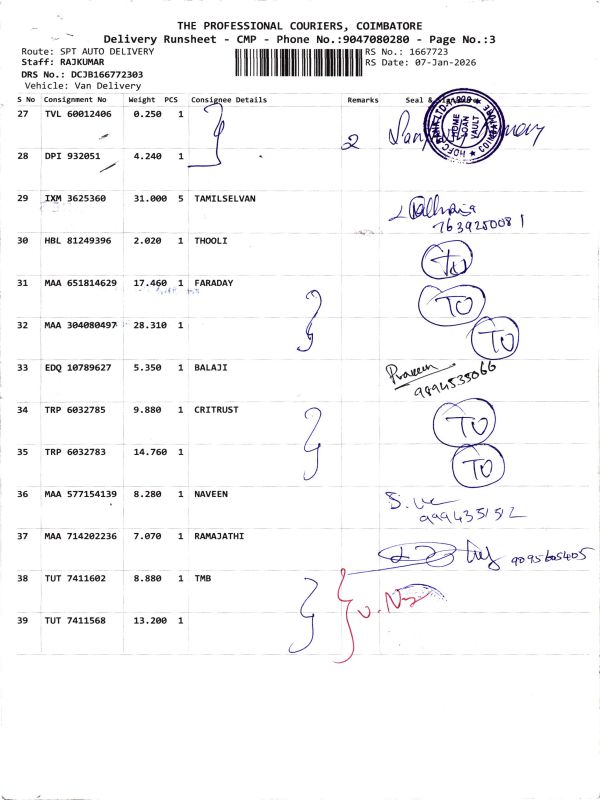 THE PROFESSIONAL COURIERS, COIMBATORE
Delivery Runsheet - CMP - Phone No.:9047080280 - Page No.:3
Route: SPT AUTO DELIVERY
RS No.: 1667723
Staff: RAJKUMAR
RS Date: 07-Jan-2026
DRS No.: DCJB166772303
Vehicle: Van Delivery
S No Consignment No Weight PCS Consignee Details Remarks Seal &
27 TVL 60012406 0.250 1
HOME LOAN VAULT
2
28 DPI 932051 4.240 1
29 IXM 3625360 31.000 5 TAMILSELVAN
7639250081
30 HBL 81249396 2.020 1 THOOLI
TO
31 MAA 651814629 17.460 1 FARADAY
TO
32 MAA 304080497 28.310 1
TO
33 EDQ 10789627 5.350 1 BALAJI
Praveen
9894535066
34 TRP 6032785 9.880 1 CRITRUST
TO
35 TRP 6032783 14.760 1
TO
36 MAA 577154139 8.280 1 NAVEEN
9994351512
37 MAA 714202236 7.070 1 RAMAJATHI
9095605405
38 TUT 7411602 8.880 1 TMB
39 TUT 7411568 13.200 1